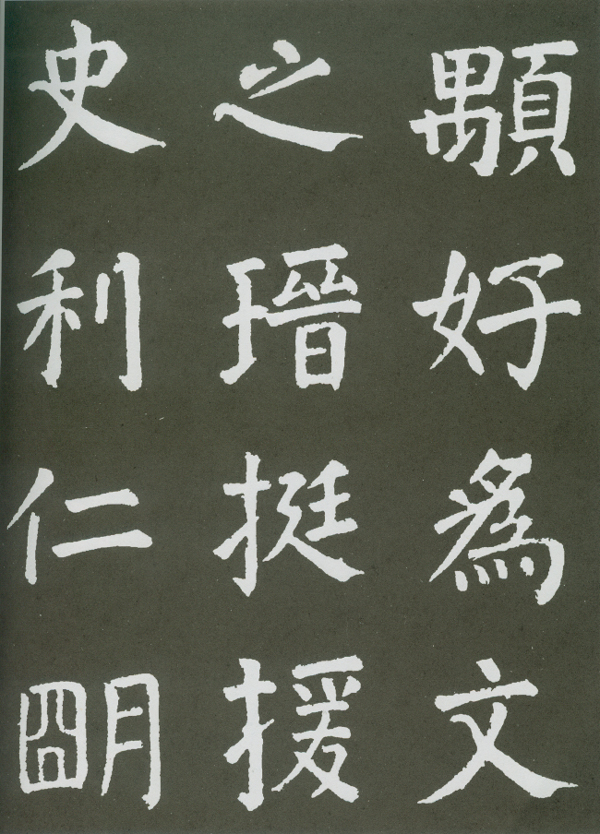 顒好爲文
之瑨挺援
史利仁朙